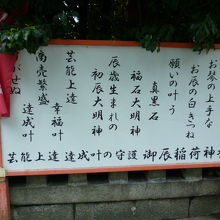 お琴の上手な
お辰の白きつね
願いの叶う
真黒石
福石大明神
初辰大明神
辰歳生まれの
芸能上達
幸福叶
商売繁盛
達成叶
かぜぬ
芸能上達 達成叶の守護 御辰稲荷神